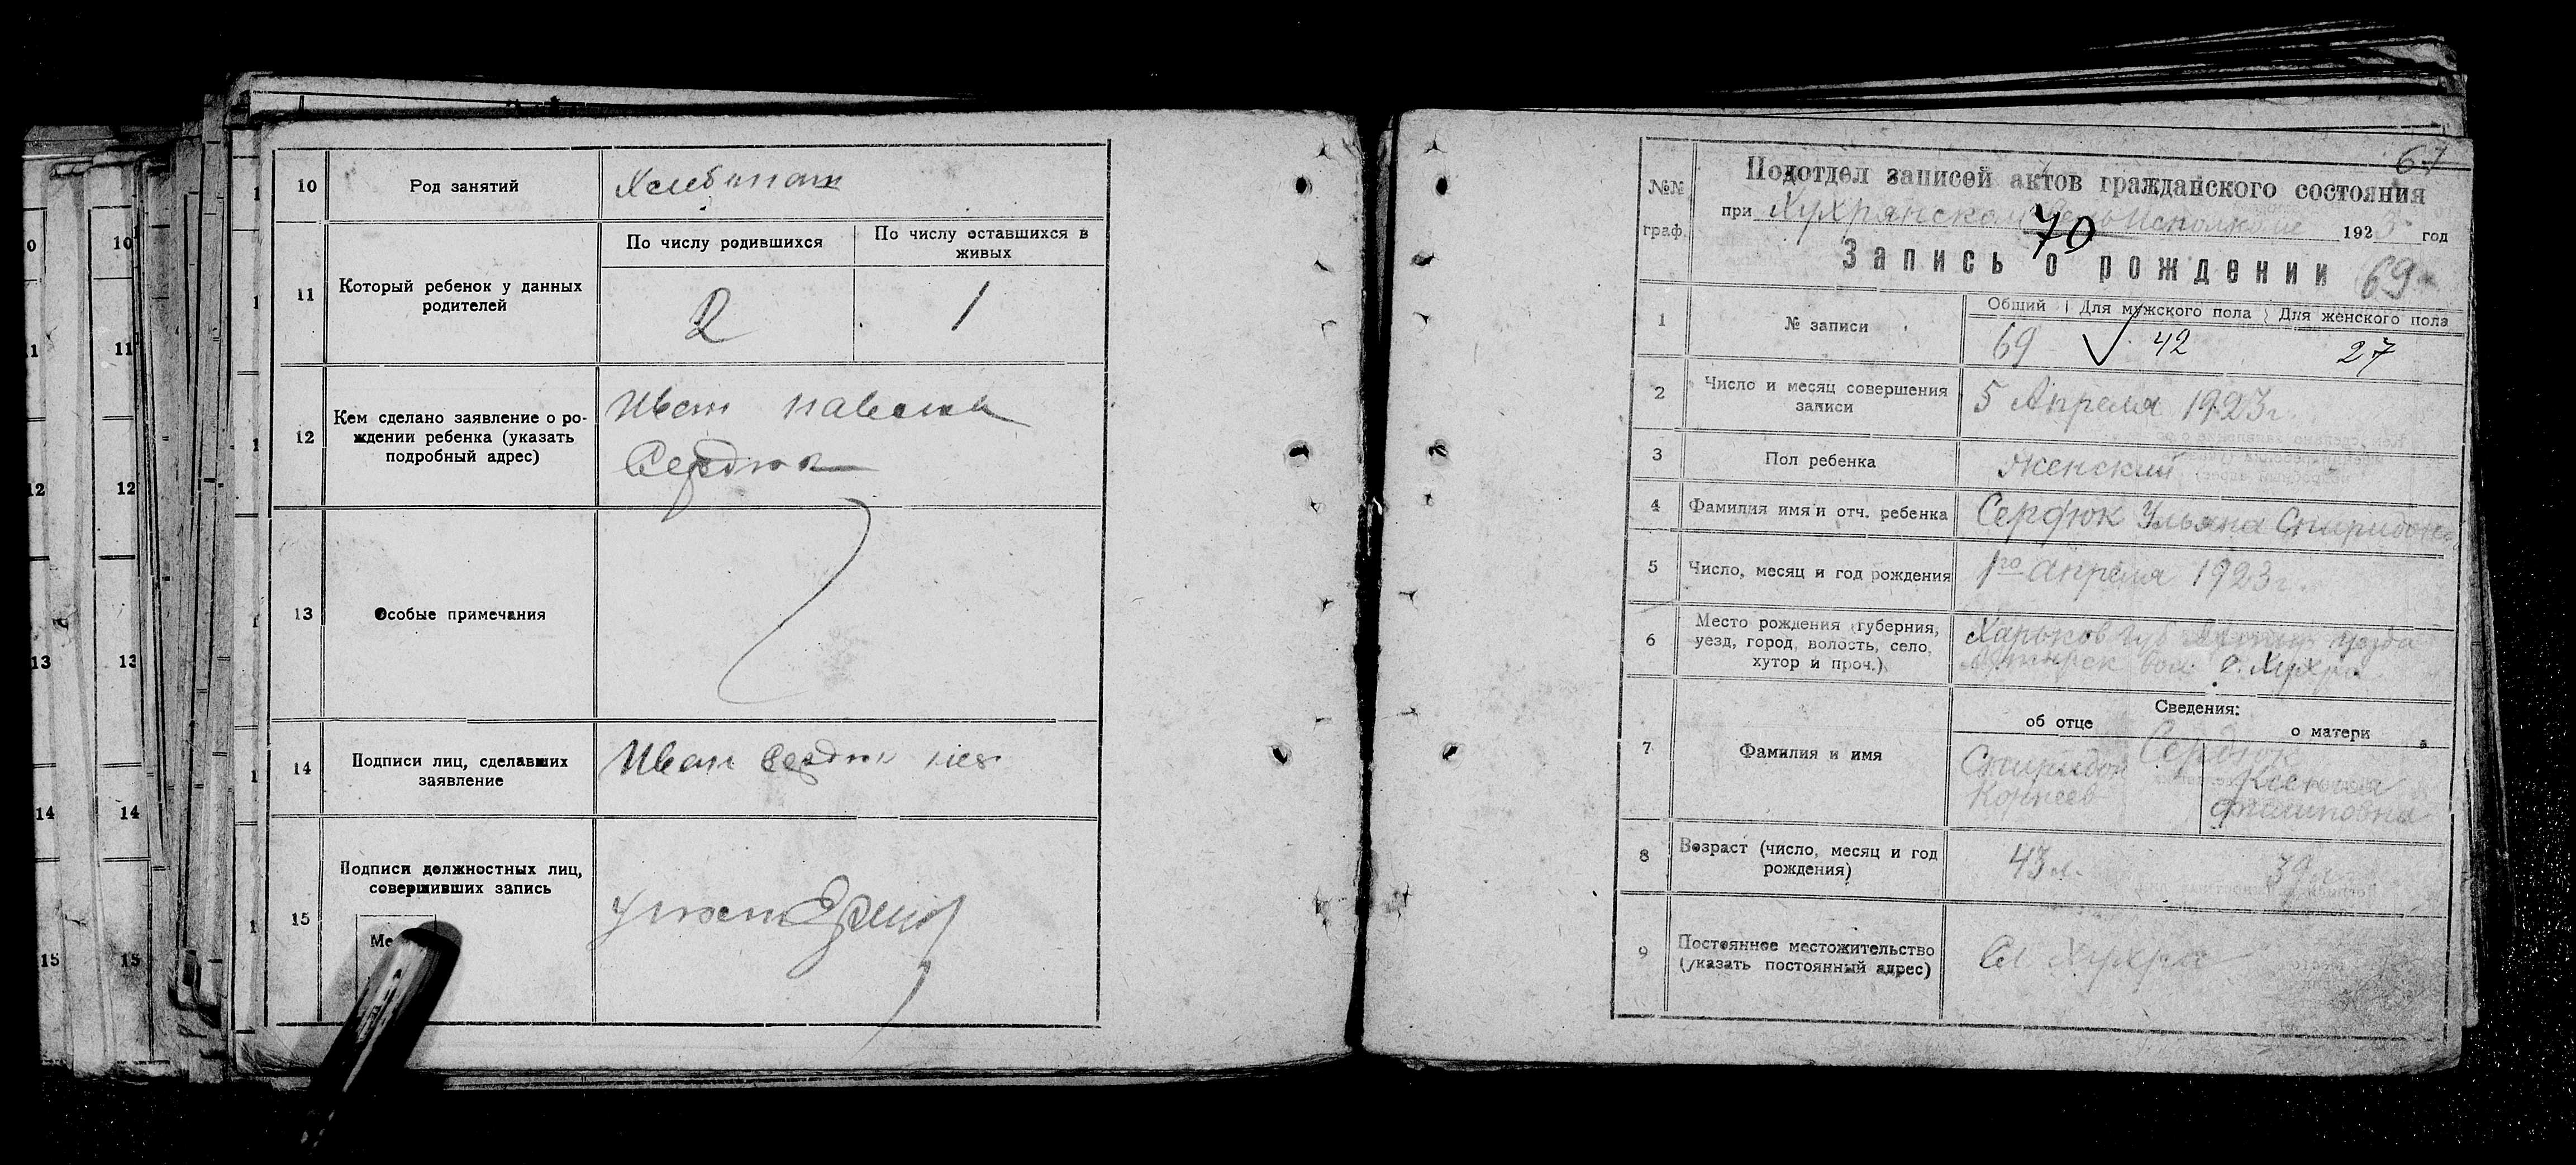 10 Род занятий Хлебопаш
11 Который ребенок у данных родителей
По числу родившихся
По числу оставшихся в живых
2
1
12 Кем сделано заявление о рождении ребенка (указать подробный адрес)
Иван
Сердюк
13 Особые примечания
14 Подписи лиц, сделавших заявление
Иван Сердюк
15 Подписи должностных лиц, совершивших запись
Ме
67
№№ граф.
Подотдел записей актов гражданского состояния
при Хухрянском исполкоме 1923 год
70
Запись о рождении 69
1 № записи
Общий
Для мужского пола
Для женского пола
69
42
27
2 Число и месяц совершения записи
5 Апреля 1923 г.
3 Пол ребенка
Женский
4 Фамилия имя и отч. ребенка
Сердюк Ульяна Спиридон
5 Число, месяц и год рождения
1го апреля 1923 г.
6 Место рождения (губерния, уезд, город, волость, село, хутор и проч.)
Харьков губ уезда
вол. с. Хухра
7 Фамилия и имя
Сведения:
об отце
о матери
Сердюк
Спиридон
Корнеев
Ксения
Филиповна
8 Возраст (число, месяц и год рождения)
43 л.
39 л.
9 Постоянное местожительство (указать постоянный адрес)
Сл Хухра
10
11
12
13
14
15
10
11
12
13
14
15